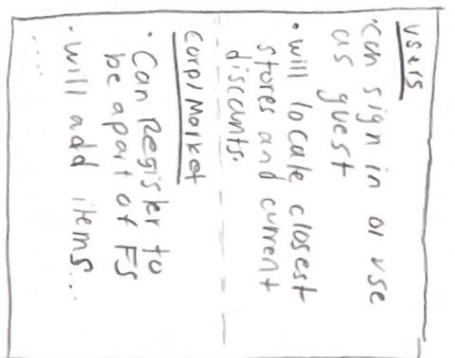 users
• can sign in or use
as guest
• will locate closest
stores and current
discounts.
Corp/Market
• Can Register to
be apart of FS
• will add items...
.....